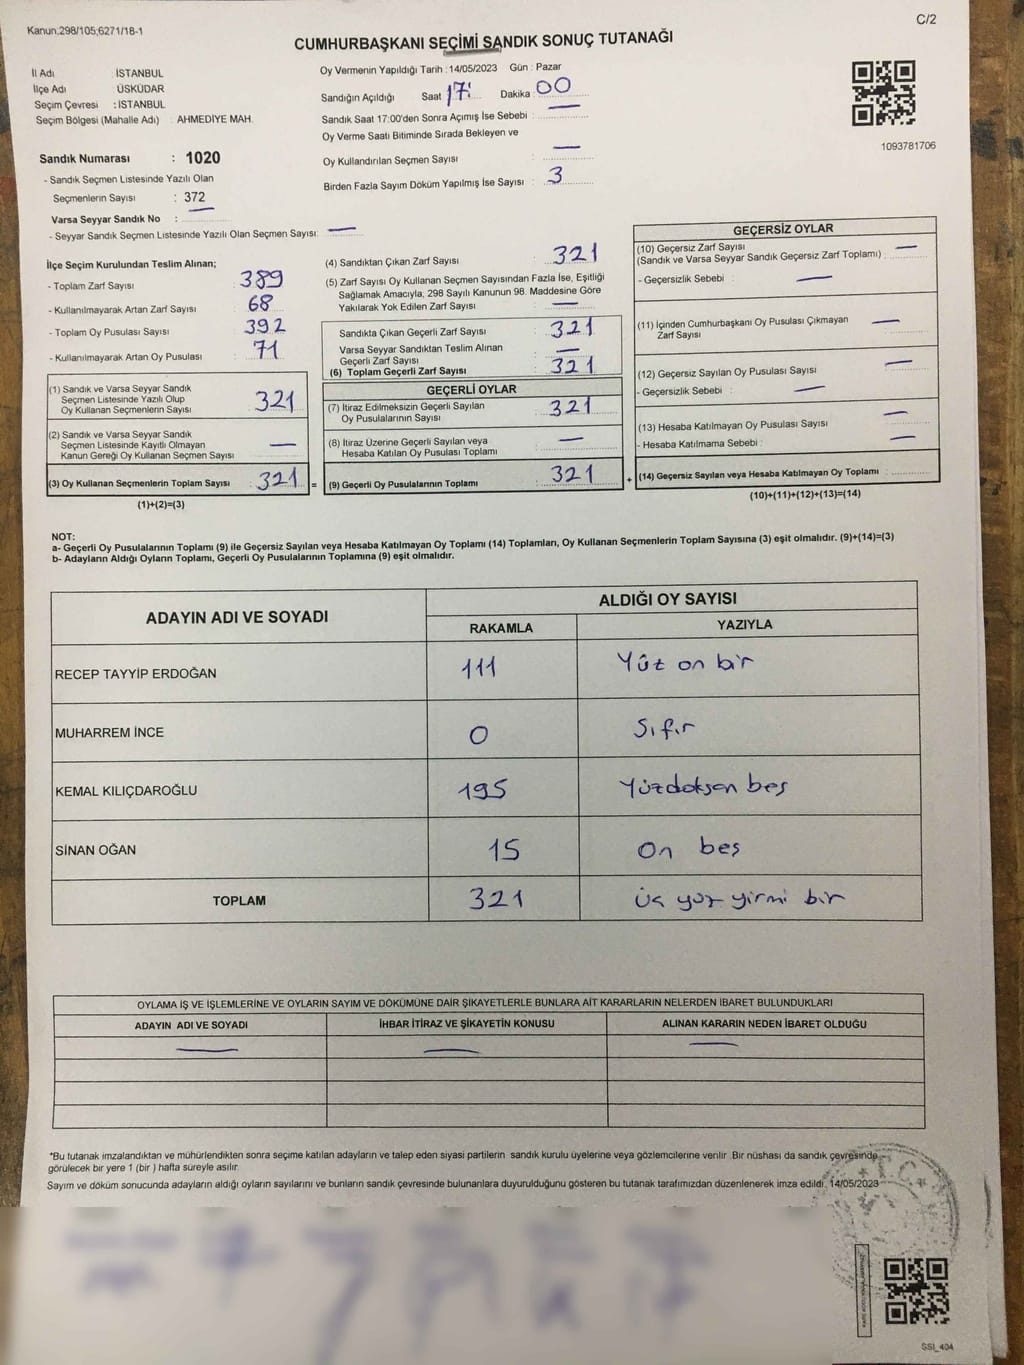 Kanun;298/105;6271/18-1
C/2
CUMHURBAŞKANI SEÇİMİ SANDIK SONUÇ TUTANAĞI
İl Adı : İSTANBUL
İlçe Adı : ÜSKÜDAR
Seçim Çevresi : İSTANBUL
Seçim Bölgesi (Mahalle Adı) : AHMEDİYE MAH.
Oy Vermenin Yapıldığı Tarih : 14/05/2023 Gün : Pazar
Sandığın Açıldığı Saat 17: Dakika : 00
Sandık Saat 17:00'den Sonra Açımış İse Sebebi : —
Oy Verme Saati Bitiminde Sırada Bekleyen ve
Oy Kullandırılan Seçmen Sayısı : —
Birden Fazla Sayım Döküm Yapılmış İse Sayısı : 3
1093781706
Sandık Numarası : 1020
- Sandık Seçmen Listesinde Yazılı Olan
Seçmenlerin Sayısı : 372
Varsa Seyyar Sandık No : —
- Seyyar Sandık Seçmen Listesinde Yazılı Olan Seçmen Sayısı: —
İlçe Seçim Kurulundan Teslim Alınan;
- Toplam Zarf Sayısı : 389
- Kullanılmayarak Artan Zarf Sayısı : 68
- Toplam Oy Pusulası Sayısı : 392
- Kullanılmayarak Artan Oy Pusulası : 71
(1) Sandık ve Varsa Seyyar Sandık
Seçmen Listesinde Yazılı Olup
Oy Kullanan Seçmenlerin Sayısı : 321
(2) Sandık ve Varsa Seyyar Sandık
Seçmen Listesinde Kayıtlı Olmayan
Kanun Gereği Oy Kullanan Seçmen Sayısı : —
(3) Oy Kullanan Seçmenlerin Toplam Sayısı : 321
(1)+(2)=(3)
(4) Sandıktan Çıkan Zarf Sayısı : 321
(5) Zarf Sayısı Oy Kullanan Seçmen Sayısından Fazla İse, Eşitliği
Sağlamak Amacıyla, 298 Sayılı Kanunun 98. Maddesine Göre
Yakılarak Yok Edilen Zarf Sayısı : —
Sandıkta Çıkan Geçerli Zarf Sayısı : 321
Varsa Seyyar Sandıktan Teslim Alınan
Geçerli Zarf Sayısı : —
(6) Toplam Geçerli Zarf Sayısı : 321
GEÇERLİ OYLAR
(7) İtiraz Edilmeksizin Geçerli Sayılan
Oy Pusulalarının Sayısı : 321
(8) İtiraz Üzerine Geçerli Sayılan veya
Hesaba Katılan Oy Pusulası Toplamı : —
= (9) Geçerli Oy Pusulalarının Toplamı : 321
GEÇERSİZ OYLAR
(10) Geçersiz Zarf Sayısı
(Sandık ve Varsa Seyyar Sandık Geçersiz Zarf Toplamı) : —
- Geçersizlik Sebebi : —
(11) İçinden Cumhurbaşkanı Oy Pusulası Çıkmayan
Zarf Sayısı : —
(12) Geçersiz Sayılan Oy Pusulası Sayısı : —
- Geçersizlik Sebebi : —
(13) Hesaba Katılmayan Oy Pusulası Sayısı : —
- Hesaba Katılmama Sebebi : —
+ (14) Geçersiz Sayılan veya Hesaba Katılmayan Oy Toplamı :
(10)+(11)+(12)+(13)=(14)
NOT:
a- Geçerli Oy Pusulalarının Toplamı (9) ile Geçersiz Sayılan veya Hesaba Katılmayan Oy Toplamı (14) Toplamları, Oy Kullanan Seçmenlerin Toplam Sayısına (3) eşit olmalıdır. (9)+(14)=(3)
b- Adayların Aldığı Oyların Toplamı, Geçerli Oy Pusulalarının Toplamına (9) eşit olmalıdır.
ADAYIN ADI VE SOYADI
ALDIĞI OY SAYISI
RAKAMLA YAZIYLA
RECEP TAYYİP ERDOĞAN 111 Yüz on bir
MUHARREM İNCE 0 Sıfır
KEMAL KILIÇDAROĞLU 195 Yüzdoksan beş
SİNAN OĞAN 15 On beş
TOPLAM 321 üç yüz yirmi bir
OYLAMA İŞ VE İŞLEMLERİNE VE OYLARIN SAYIM VE DÖKÜMÜNE DAİR ŞİKAYETLERLE BUNLARA AİT KARARLARIN NELERDEN İBARET BULUNDUKLARI
ADAYIN ADI VE SOYADI İHBAR İTİRAZ VE ŞİKAYETİN KONUSU ALINAN KARARIN NEDEN İBARET OLDUĞU
— — —
*Bu tutanak imzalandıktan ve mühürlendikten sonra seçime katılan adayların ve talep eden siyasi partilerin sandık kurulu üyelerine veya gözlemcilerine verilir. Bir nüshası da sandık çevresinde
görülecek bir yere 1 (bir ) hafta süreyle asılır.
Sayım ve döküm sonucunda adayların aldığı oyların sayılarını ve bunların sandık çevresinde bulunanlara duyurulduğunu gösteren bu tutanak tarafımızdan düzenlenerek imza edildi. 14/05/2023
T.C.
SSI_404